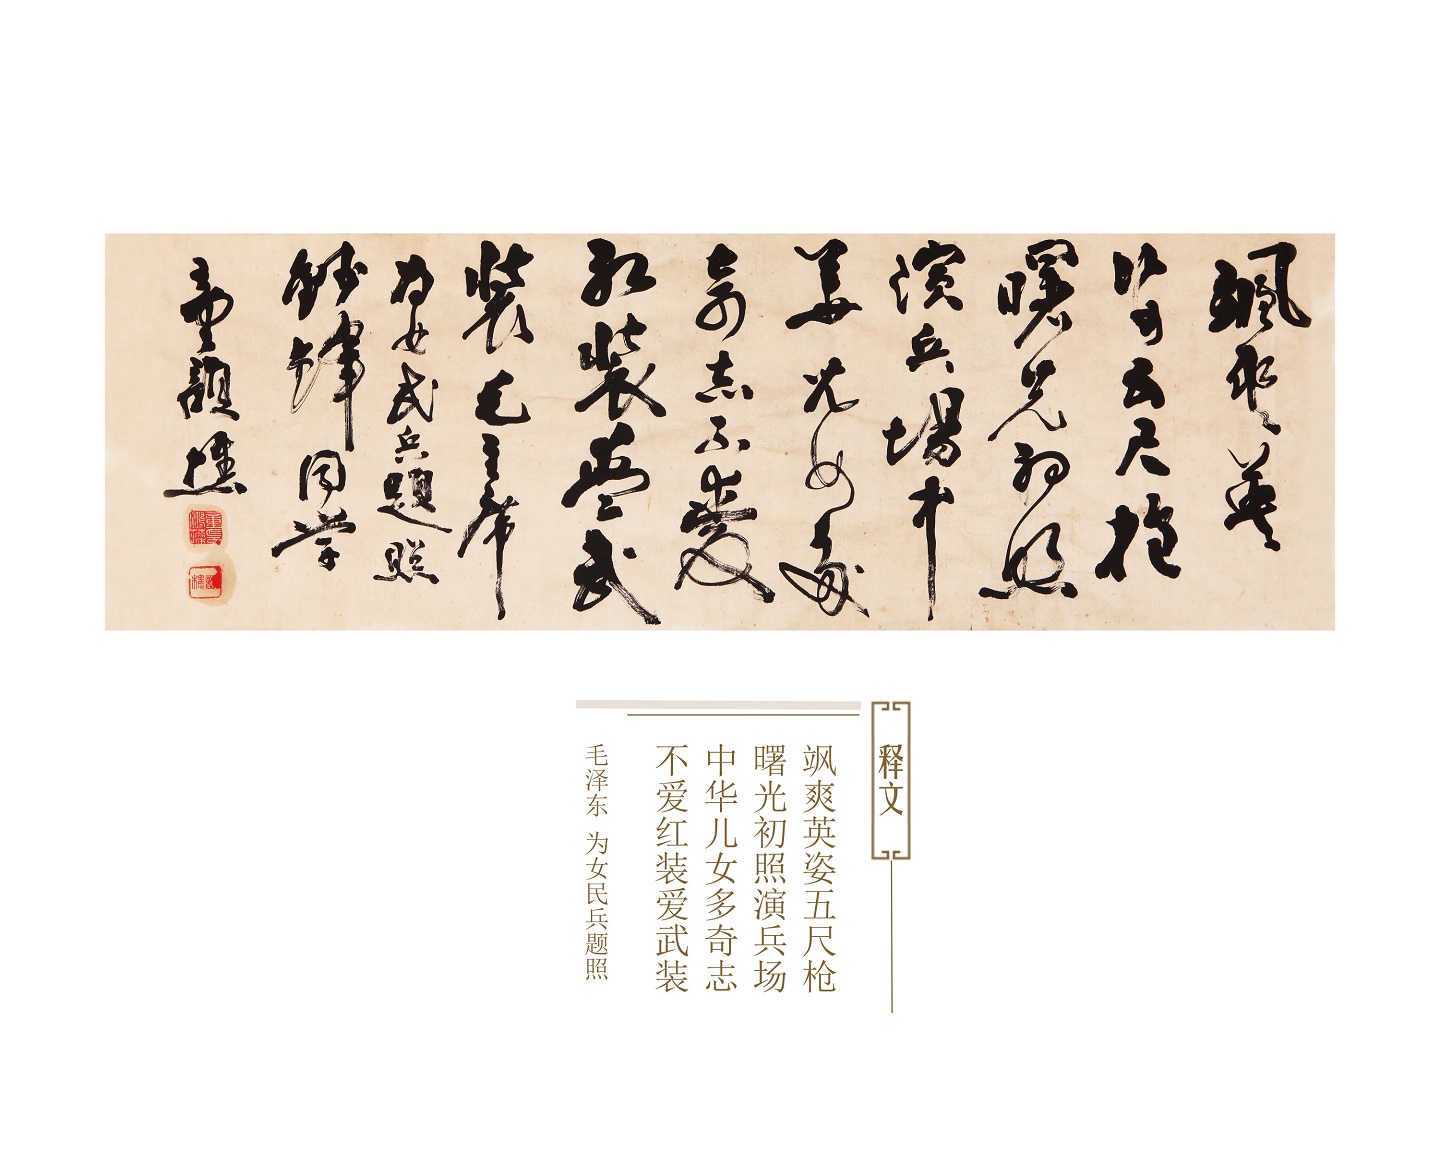 飒爽英
姿五尺枪
曙光初照
演兵場中
華兒女多
奇志不爱
红装爱武
装毛主席
为女民兵题照
钱锋同学
童韻樵
释文
飒爽英姿五尺枪
曙光初照演兵场
中华儿女多奇志
不爱红装爱武装
毛泽东 为女民兵题照